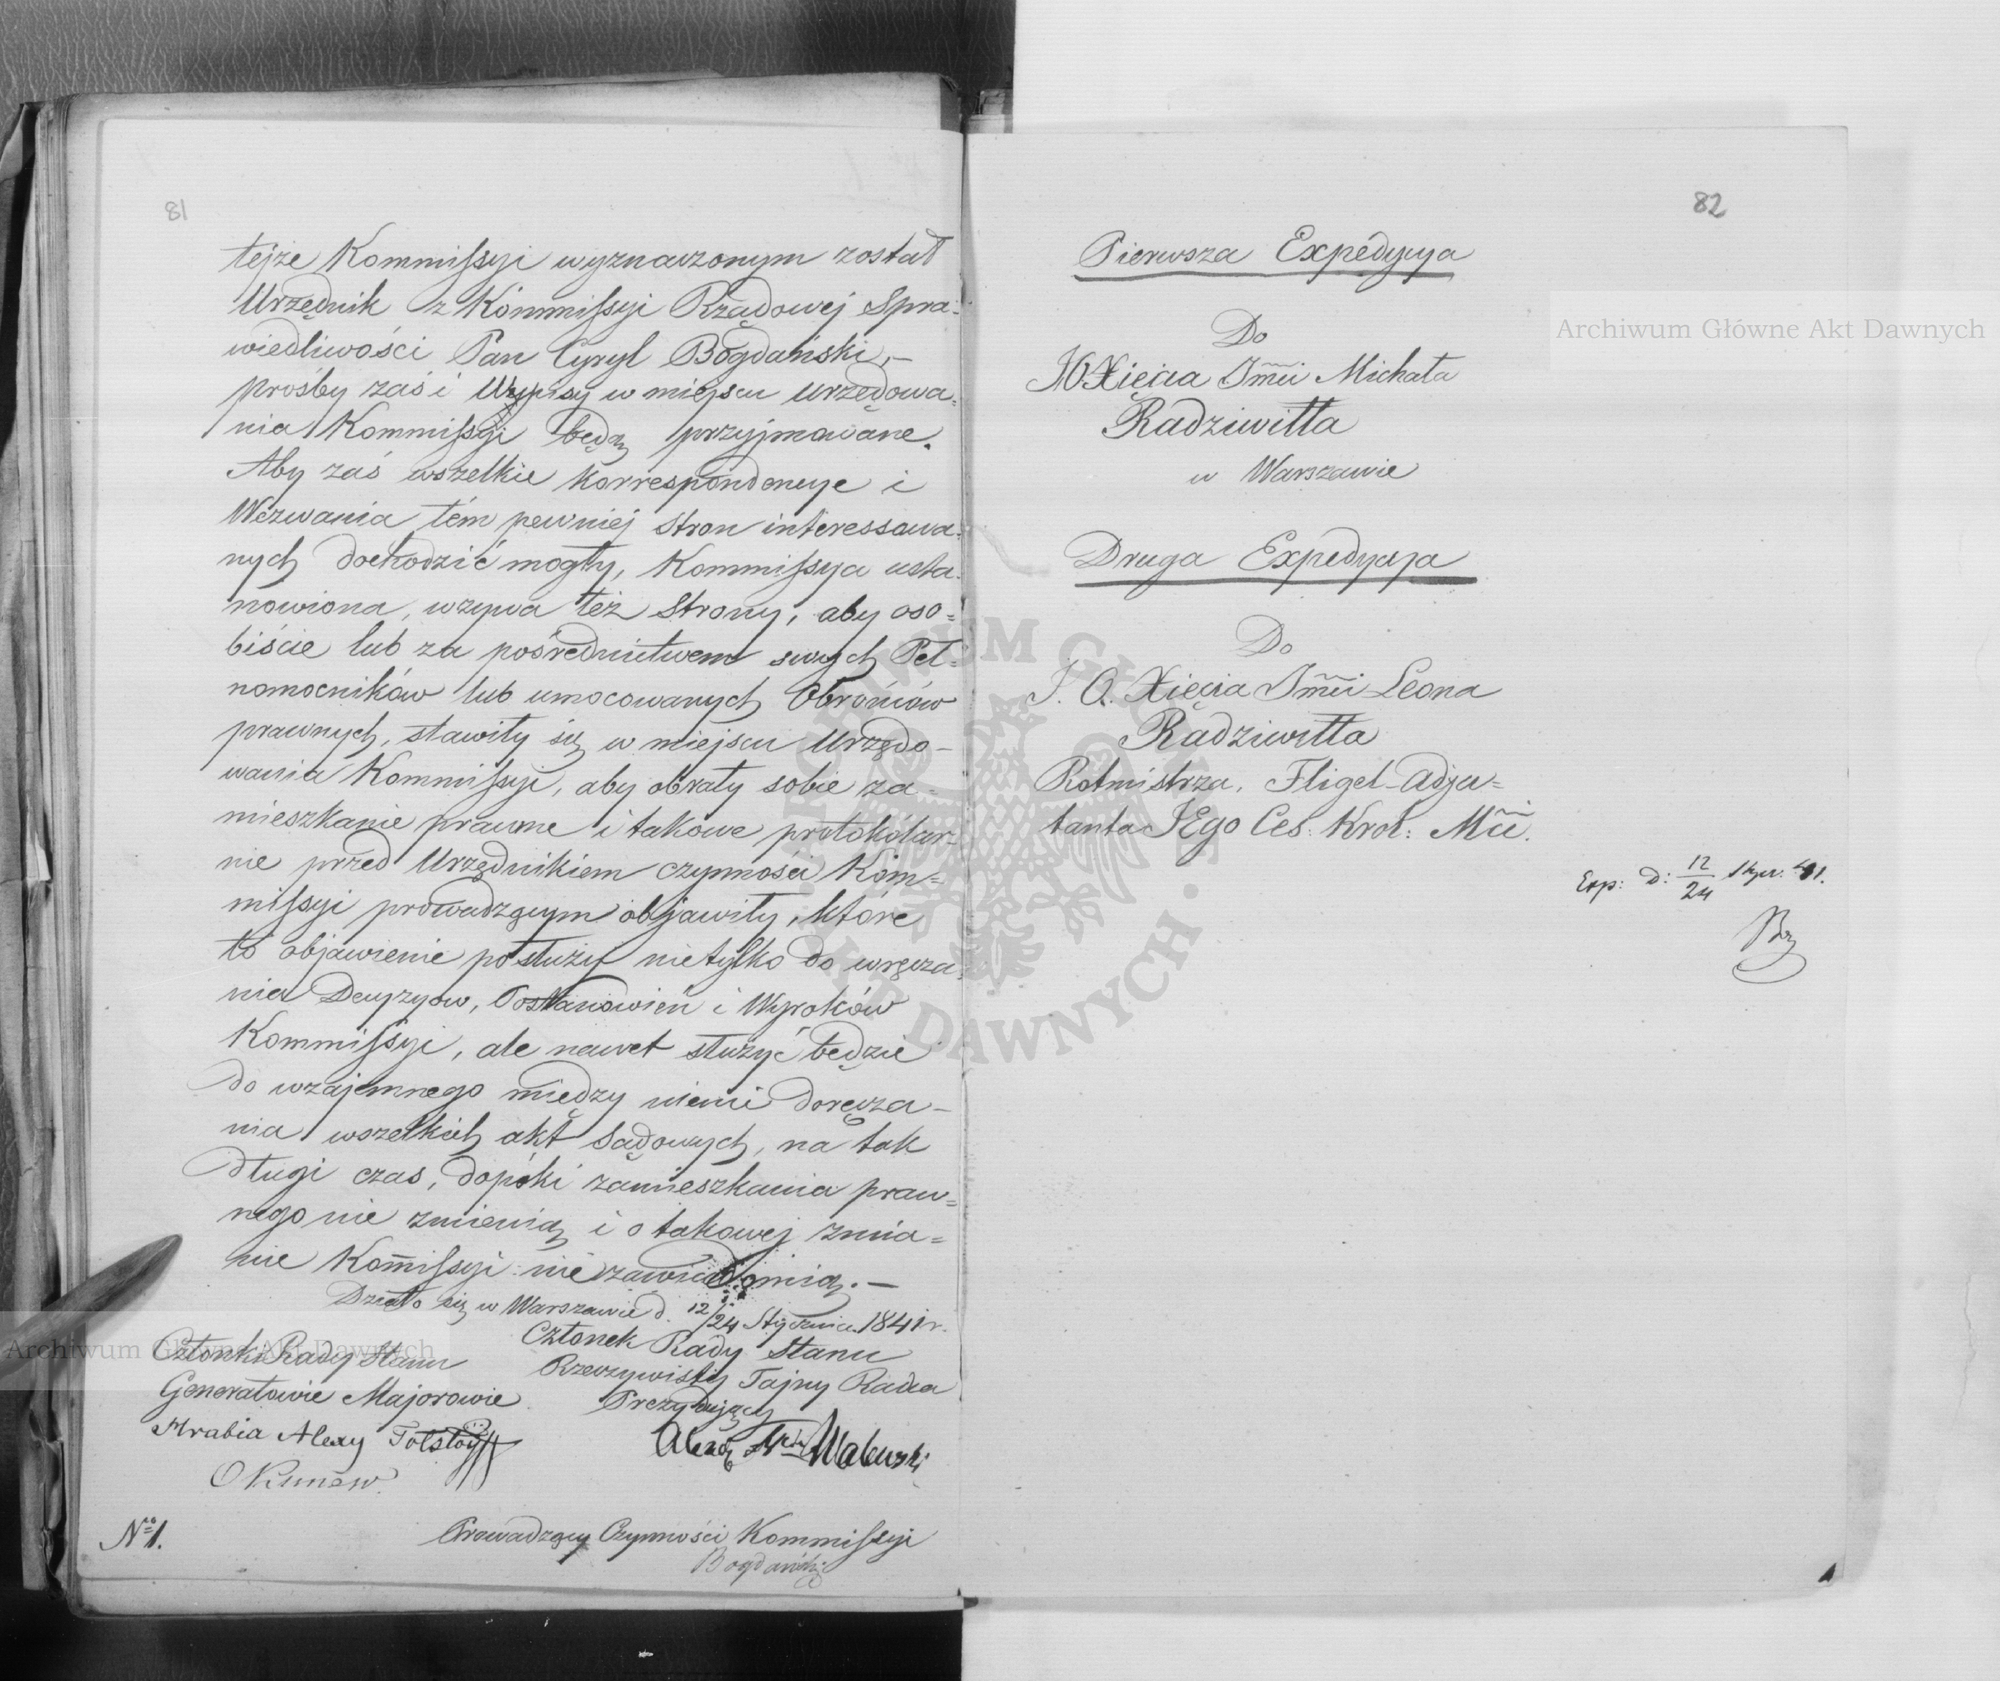 81
tejże Kommissyi wyznaczonym został
Urzędnik z Kommissyi Rządowej Spra=
wiedliwości Pan Cyryl Bogdański,—
prośby zaś i Wypisy w miejscu urzędowa=
nia Kommissyi będą przyjmowane.
Aby zaś wszelkie korrespondencye i
Wezwania tém pewniej stron interessowa=
nych dochodzić mogły, Kommissya usta=
nowiona, wzywa też Strony, aby oso=
biście lub za pośrednictwem swych Peł=
nomocników lub umocowanych Obrońców
prawnych, stawiły się w miejscu Urzędo-
wania Kommissyi, aby obrały sobie za-
mieszkanie prawne i takowe protokólar-
nie przed Urzędnikiem czynności Kom=
missyi prowadzącym objawiły, które
to objawienie posłuży nietylko do wręcza=
nia Decyzyów, Postanowień i Wyroków
Kommissyi, ale nawet służyć będzie
do wzajemnego między niemi doręcza-
nia wszelkich akt Sądowych, na tak
długi czas, dopóki zamieszkania praw=
nego nie zmienią i o takowej zmia=
nie Kom̄issyi nie zawiadomią.—
Działo się w Warszawie d. 12/24 Stycznia 1841 r.
Członki Rady Stanu
Generałowie Majorowie
Hrabia Alexy Tołstoy
Okunew.
Członek Rady Stanu
Rzeczywisty Tajny Radca
Prezydujący
Walewski
Nro 1.
Prowadzący Czynności Kommissyi
Bogdański
82
Pierwsza Expedycya
Do
JO Xięcia Jmci Michała
Radziwiłła
w Warszawie
Druga Expedycya
Do
J. O. Xięcia Jmci Leona
Radziwiłła
Rotmistrza, Fligel-Adju=
tanta JEgo Ces: Król: Mci.
Exp: d: 12/24 Stycz. 41.
Archiwum Główne Akt Dawnych
Archiwum Główne Akt Dawnych
ARCHIWUM GŁÓWNE AKT DAWNYCH